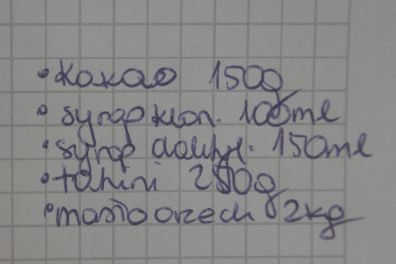 • kakao 1500g
• syrop klon. 100ml
• syrop daktyl. 150ml
• tahini 250g
• masło orzech 2kg